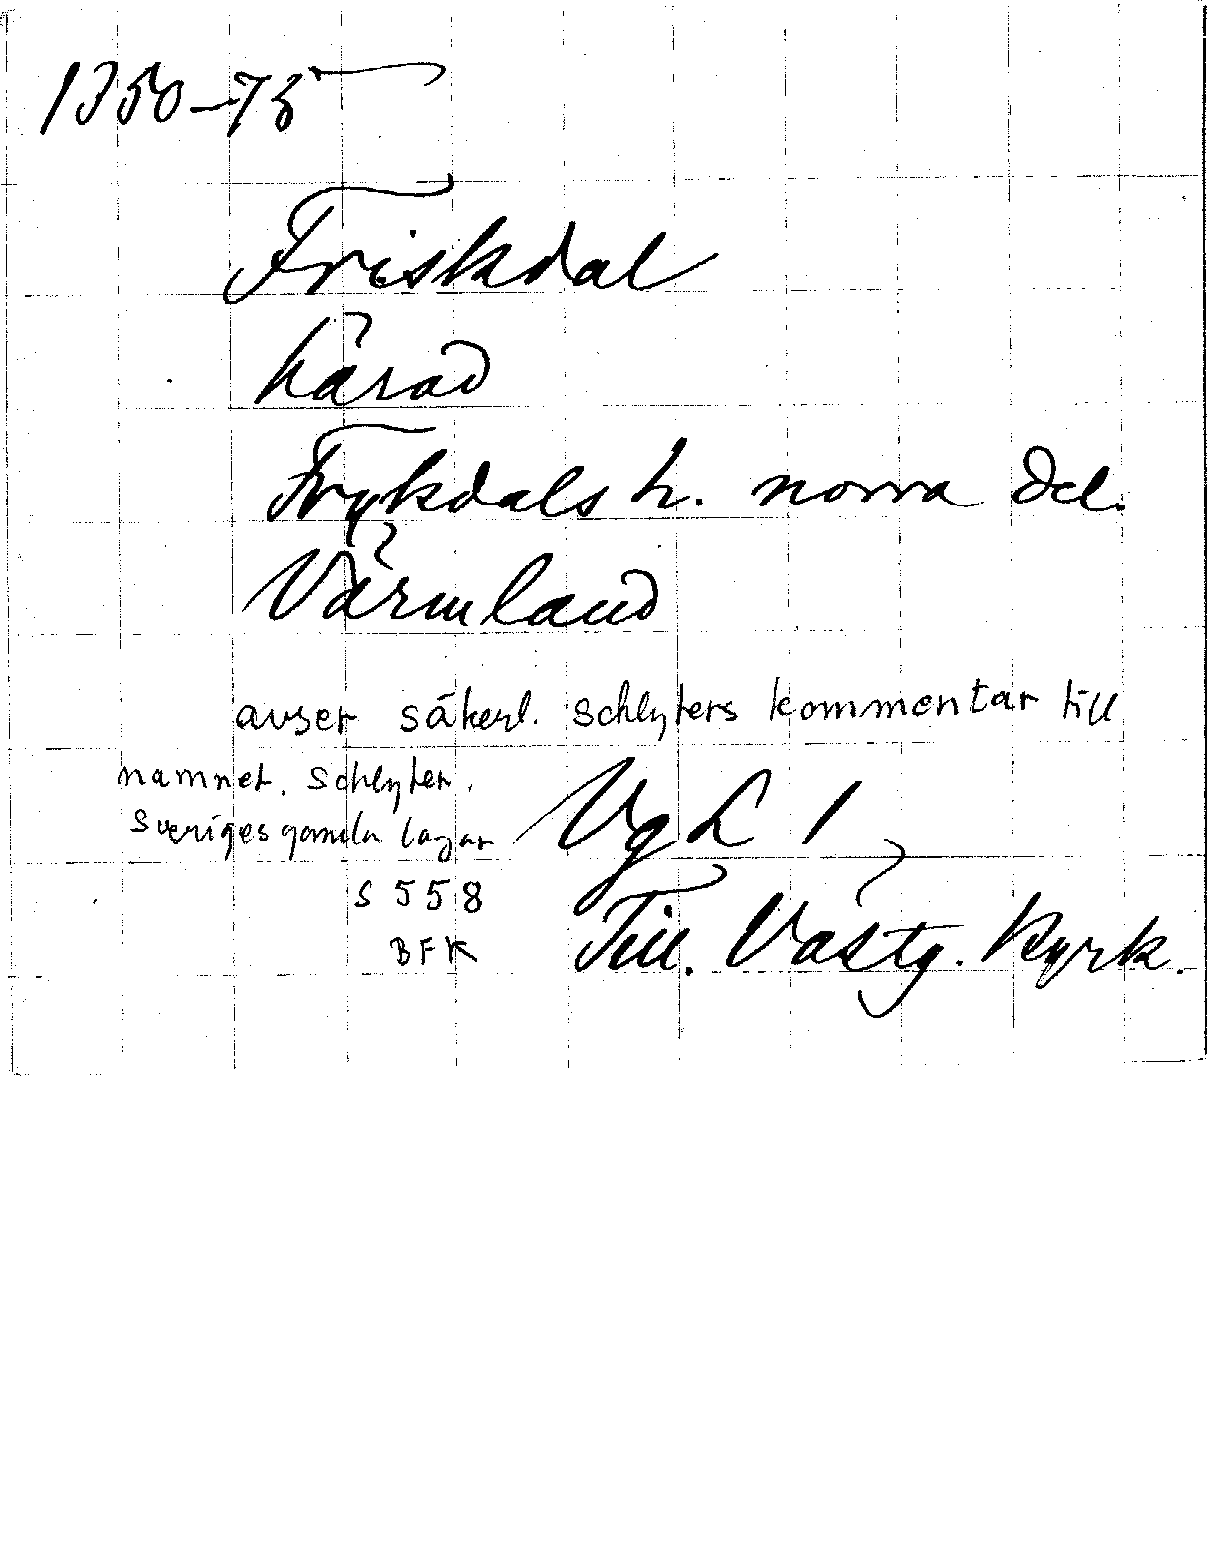 1350-75
Friskdal
härad
Frykdals h. norra del.
Värmland
avser säkerl. Schlyters kommentar till
namnet. Schlyter.
Sveriges gamla lagar
VgL 1
S 558
BFK
Till. Västg. Kyrk.